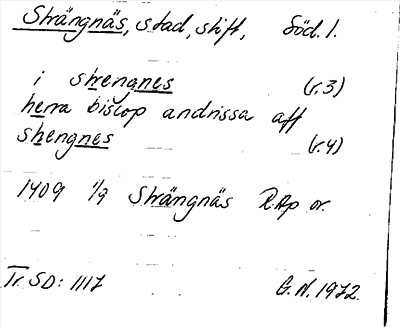 Strängnäs, stad, stift, Söd. l.
i strengnes (r.3)
herra biscop andrissa aff
strengnes (r.4)
1409 1/9 Strängnäs RAp or.
Tr SD: 1117 G.N. 1972.